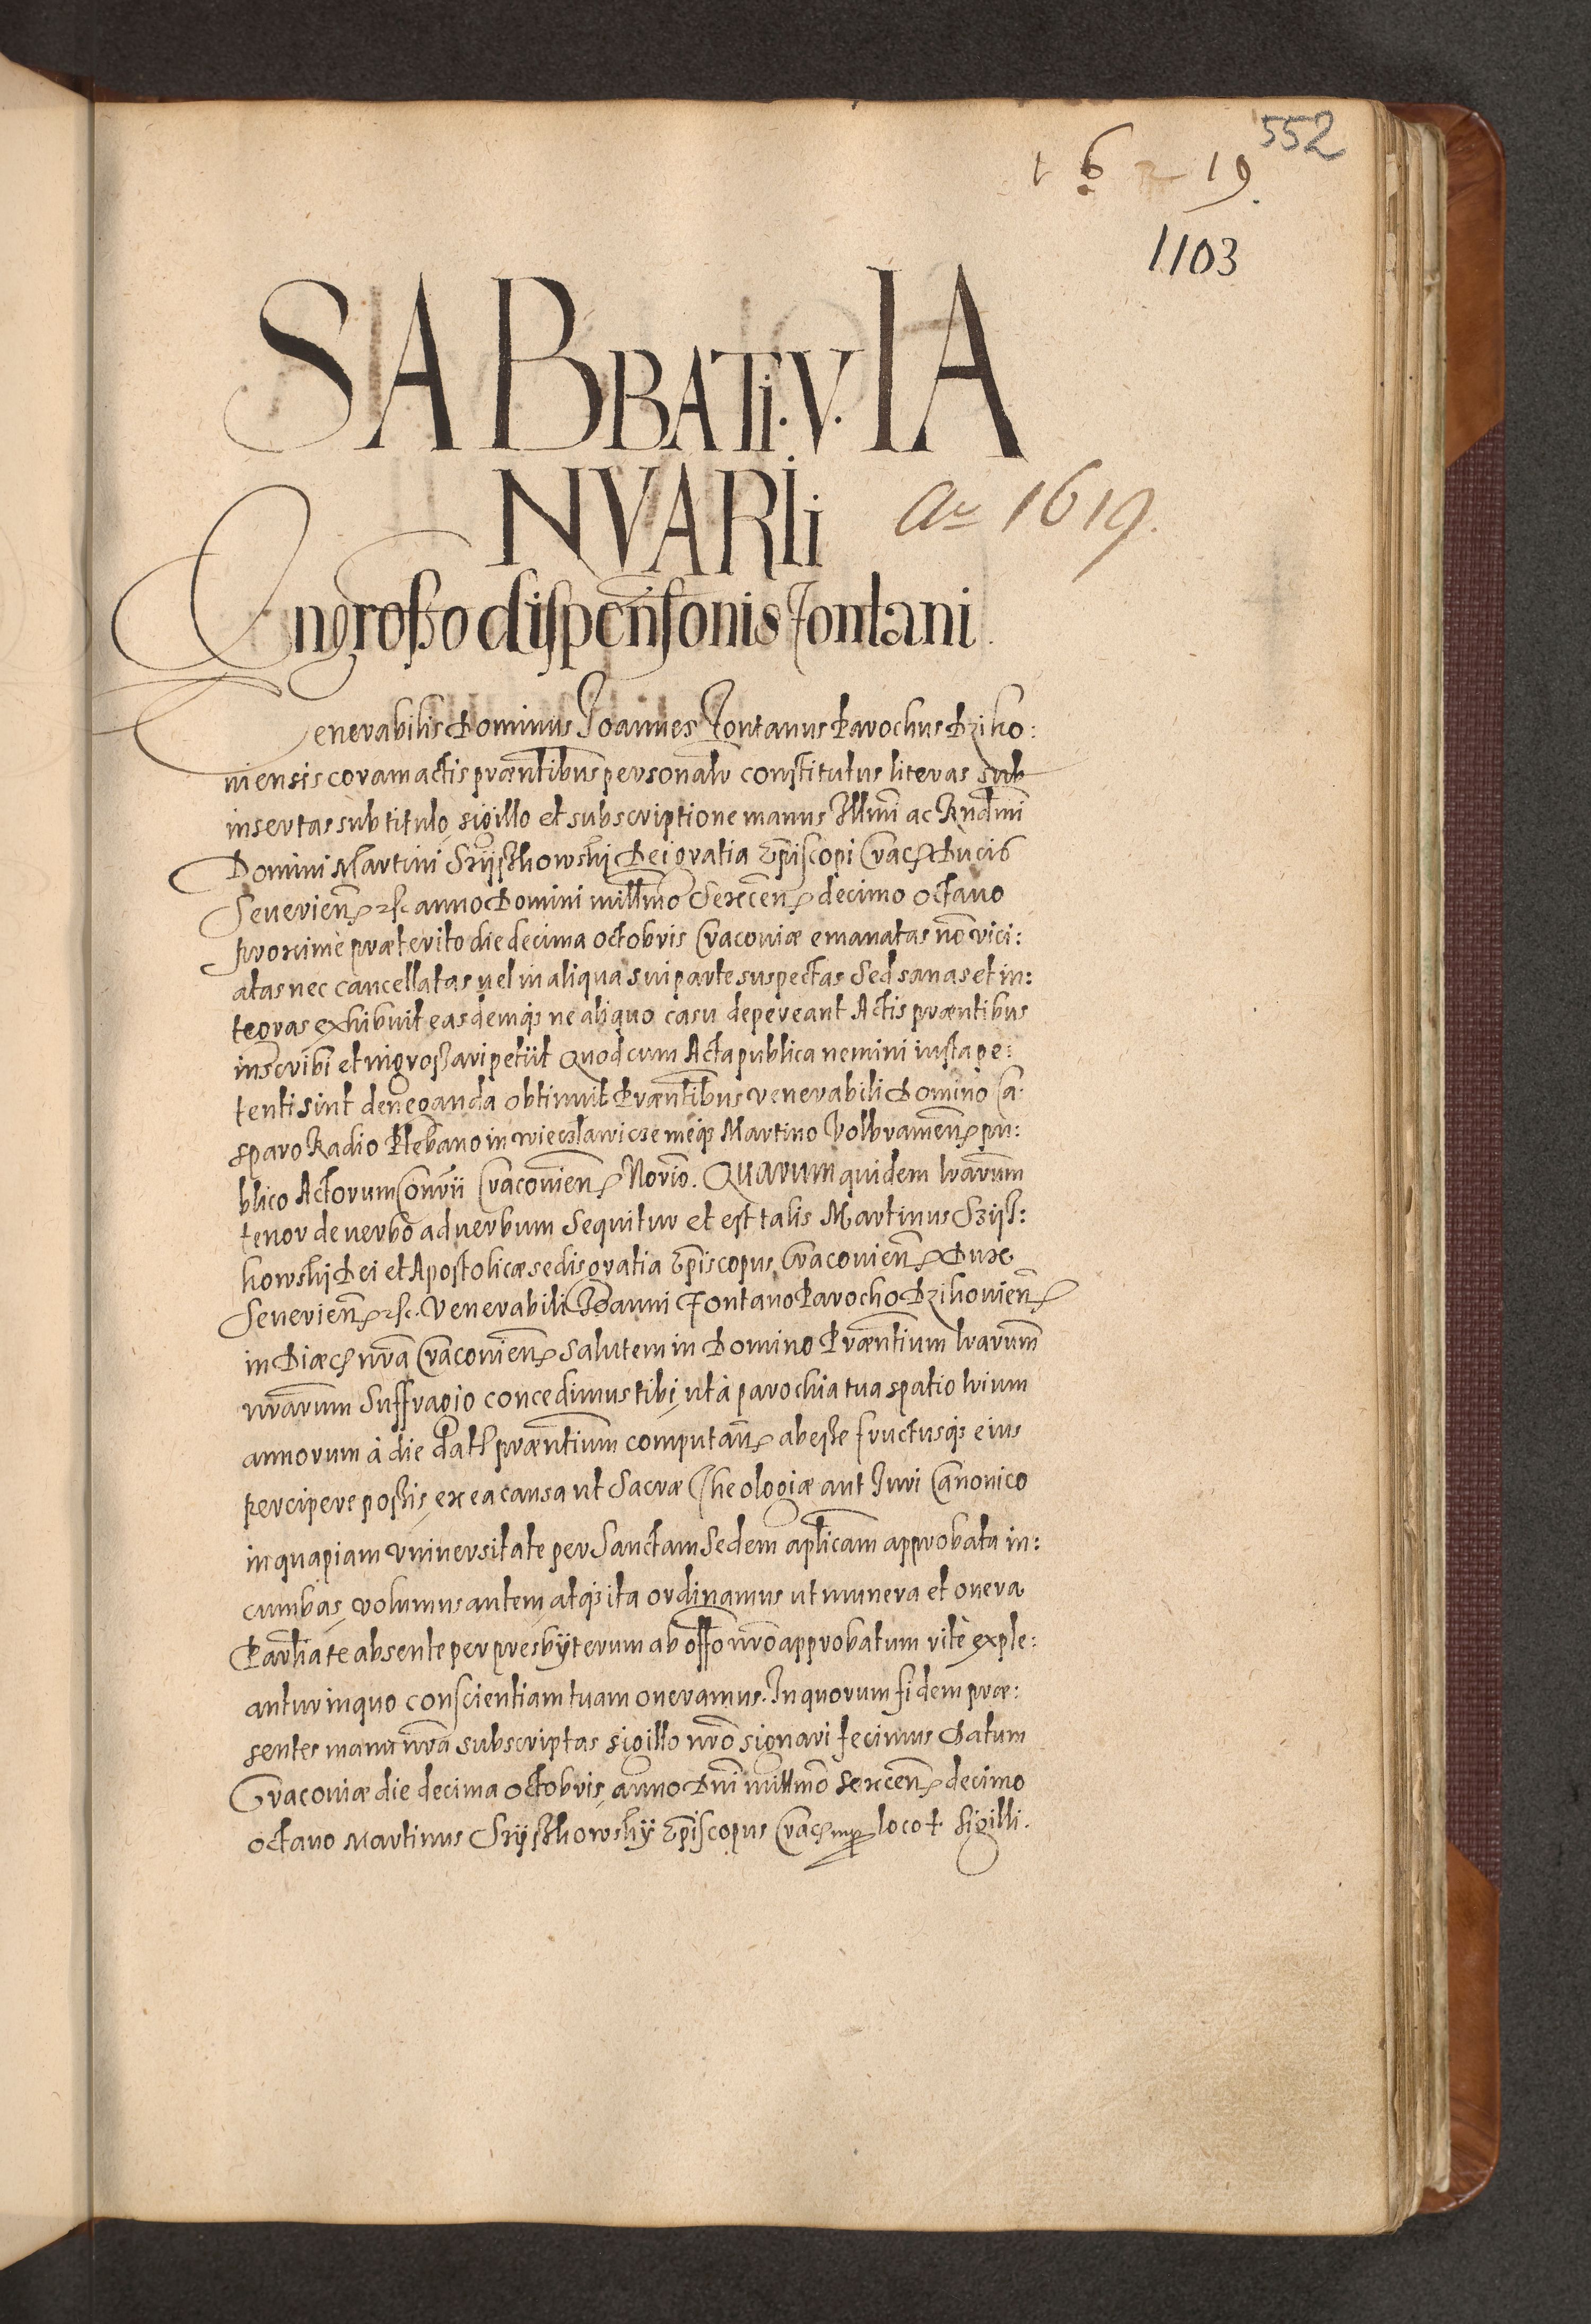 552
1619.
1103
SABBATi. V. IA
NVARIi
Ao 1619.
Ingrosso dispensonis Fontani.
Venerabilis Dominus Joannes Fontanus Parochus Dziko:
niensis coram actis præntibus personalr constitutus literas sub
insertas sub titulo, sigillo et subscriptione manus Illmi ac Rndmi
Domini Martini Szÿszkowski Dei gratia Episcopi Crac. Ducis
Seuerien. etc. anno Domini millmo Sexcen. decimo octauo
proxime præterito die decima octobris Cracoviæ emanatas no vici:
atas nec cancellatas vel in aliqua sui parte suspectas sed sanas et in:
tegras exhibuit easdemq; ne aliquo casu depereant Actis præntibus
inscribi et ingrossari petiit Quod cum Acta publica nemini iusta pe:
tenti sint deneganda obtinuit Præntibus venerabili Domino Ca:
sparo Radio Plebano in wieczlawice meq; Martino Volbramen. pu:
blico Actorum Consrii Cracovien. Norio. Quarum quidem lrarum
tenor de verbo ad verbum sequitur et est talis Martinus Szÿsz:
kowski Dei et Apostolicæ sedis gratia Episcopus Cracovien. Dux
Seuerien. etc. Venerabili Joanni Fontano Parocho Dzikovien.
in Diæc. nra Cracovien. salutem in Domino Præntium lrarum
nrarum suffragio concedimus tibi, ut à parochia tua spatio trium
annorum à die dat. præntium computan. abesse fructusq; eius
percipere possis, ex ea causa ut Sacræ Theologiæ aut Juri Canonico
in quapiam vniuersitate per Sanctam Sedem aplicam approbata in:
cumbas, volumus autem atq; ita ordinamus ut munera et onera
Parlia te absente per presbÿterum ab offo nro approbatum ritè exple:
antur in quo conscientiam tuam oneramus. In quorum fidem præ:
sentes manu nra subscriptas sigillo nro signari fecimus Datum
Cracoviæ die decima octobris, anno Dni millmo sexcen. decimo
octauo Martinus Szÿszkowskÿ Episcopus Crac. mp loco + sigilli.